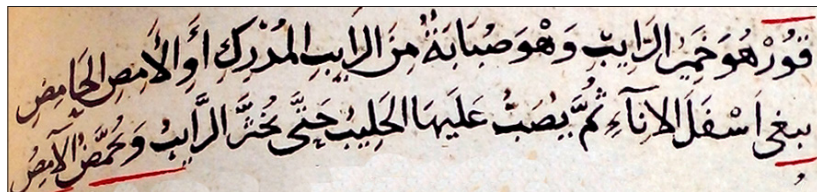 قَوْرْ هُوَ خَمِيرُ الرَايِبِ وَهْوَ صُبَابَةٌ مِنَ الرَايِبِ المُدْرِكِ اَوِ الاَمِصِ الحَامِصِ
يبقى اَسْفَلَ الاِنَآءِ ثُمَّ يُصَبُّ عَلَيهَا الحَلِيبُ حَتَّى يَخْثَرَ الرَّايبُ وَيُحَمَّضُ الآمِصُ